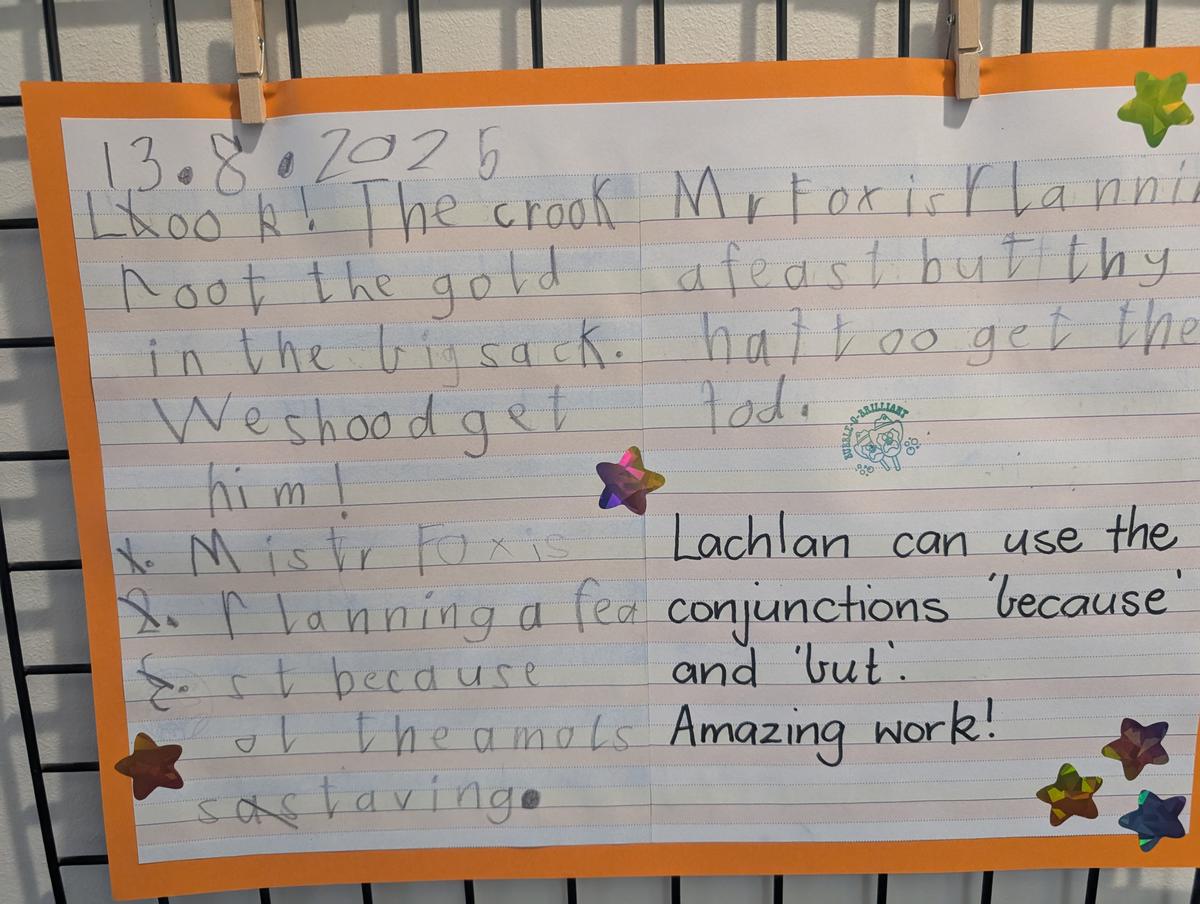 13.8.2025
Look! The crook
Poot the gold
in the big sack.
We shood get
him!
Mistr Fox is
Planning a fea
st because
ol the amols
sastaving.
Mr Fox is Planni
a feast but thy
haf too get the
fod.
BUBBLE-O-BRILLIANT
Lachlan can use the
conjunctions 'because'
and 'but'.
Amazing work!